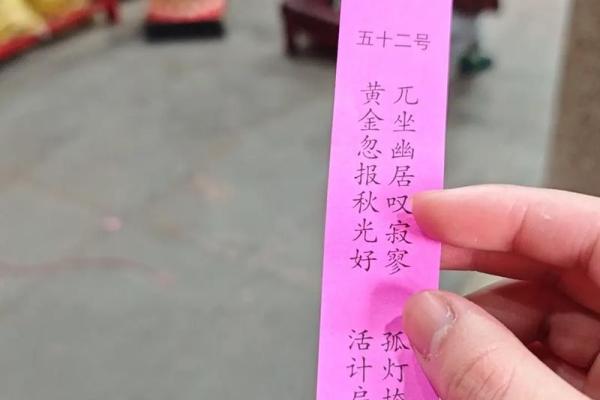 五十二号
兀坐幽居叹寂寥 孤灯
黄金忽报秋光好 活计